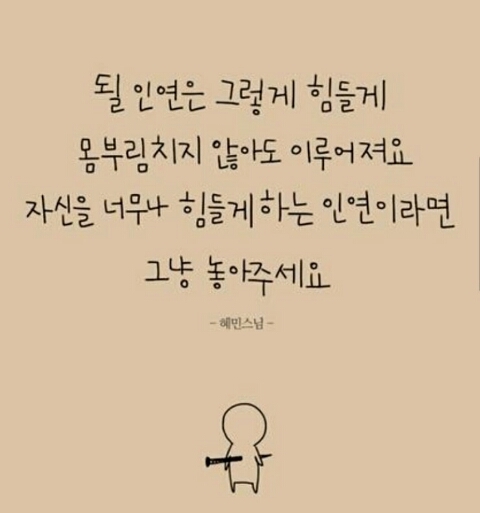 될 인연은 그렇게 힘들게
몸부림치지 않아도 이루어져요
자신을 너무나 힘들게하는 인연이라면
그냥 놓아주세요
- 혜민스님 -